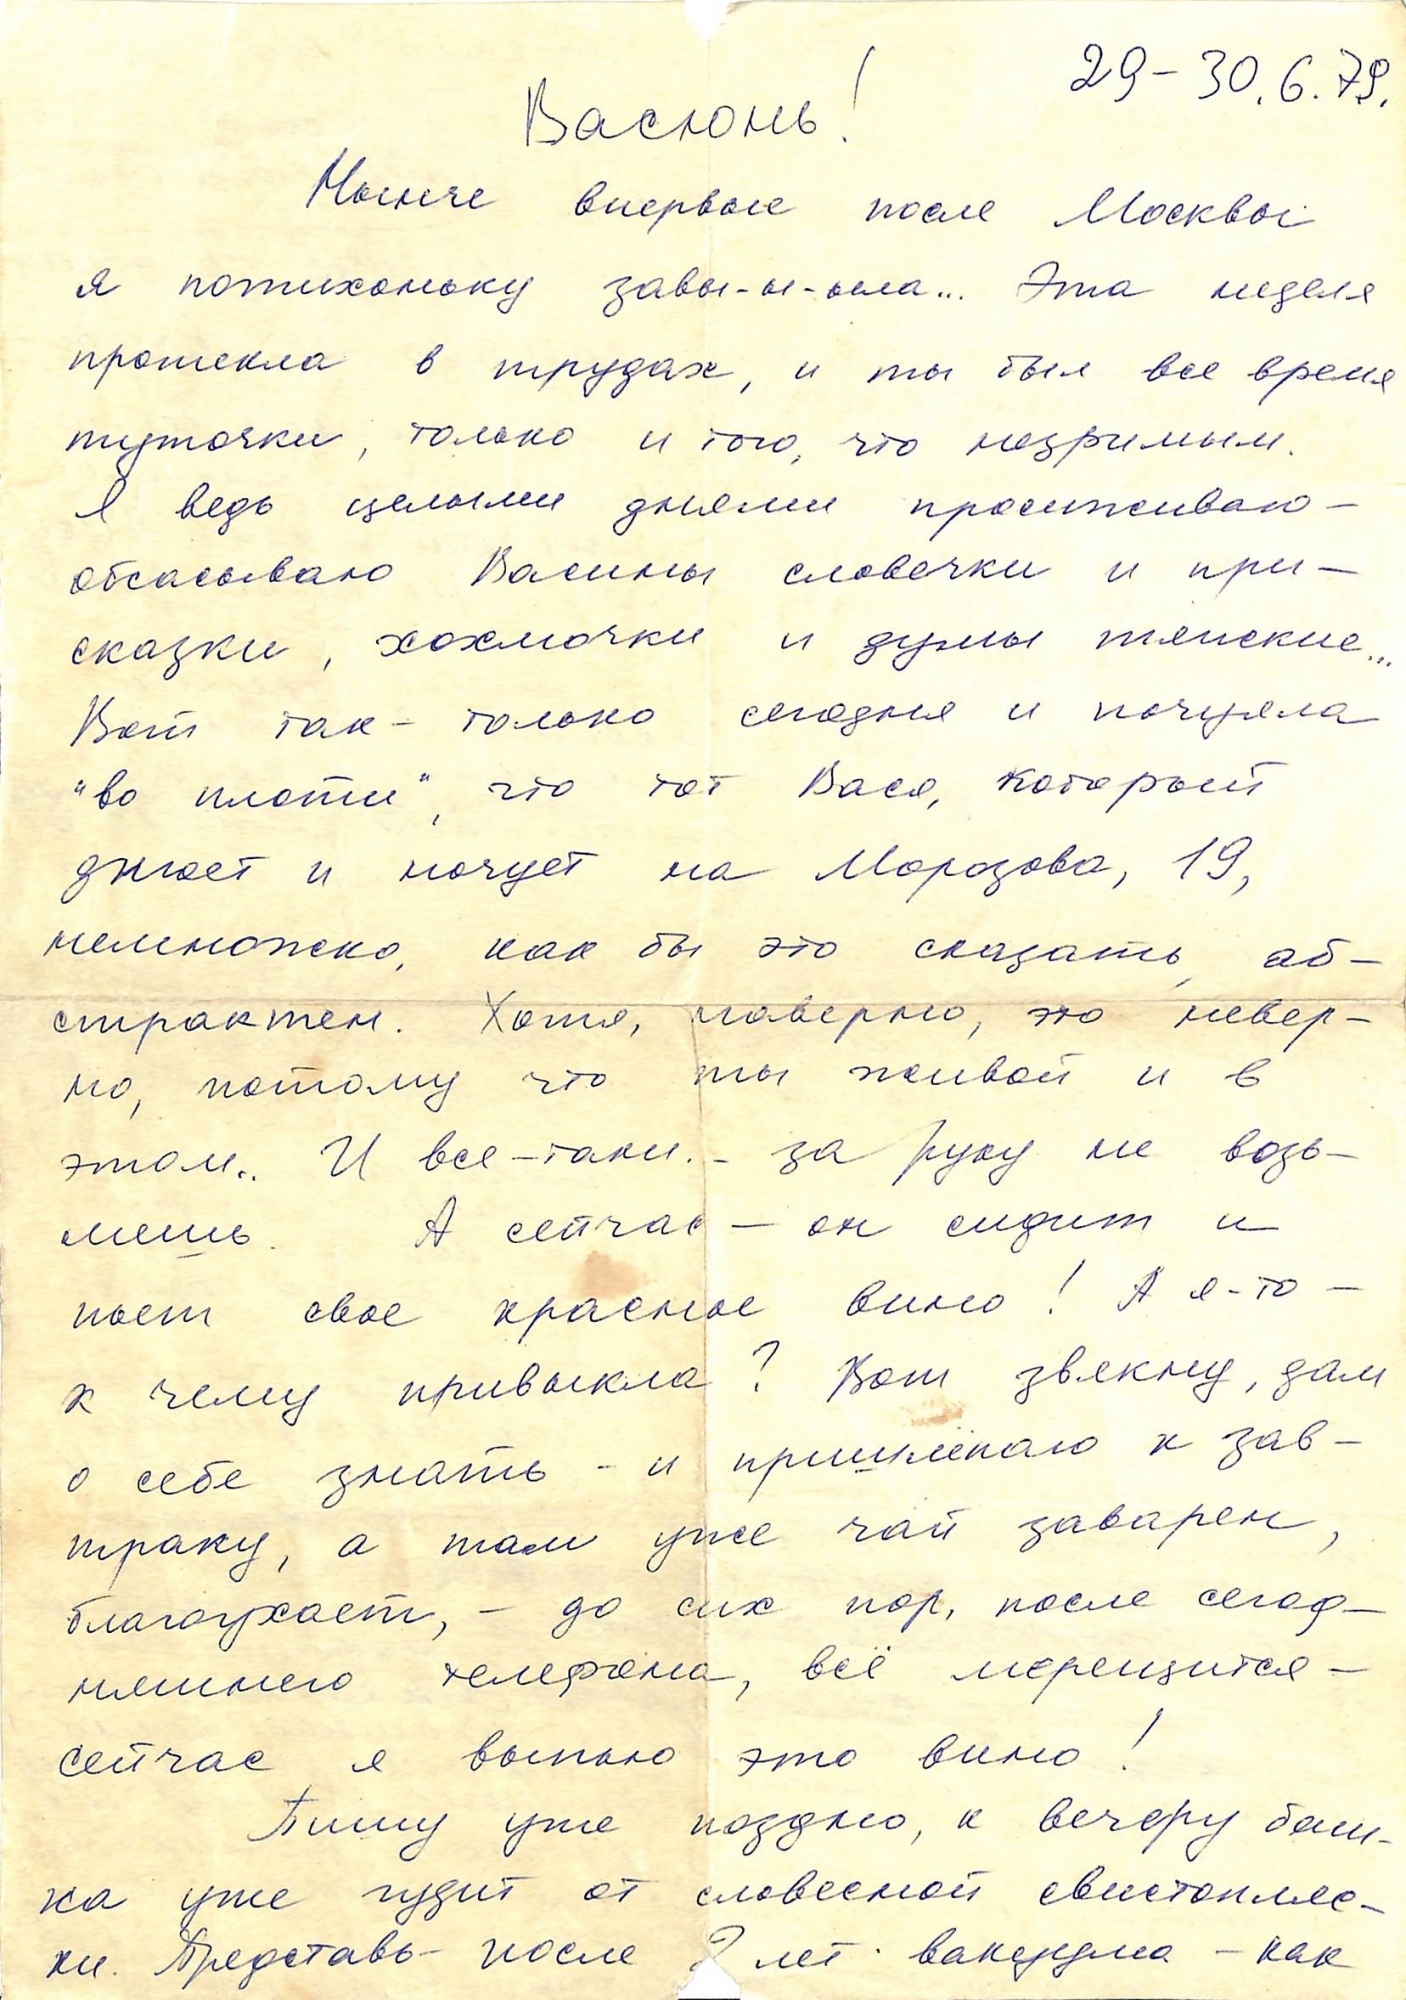 29-30.6.79.
Васюнь!
Нынче впервые после Москвы
я потихоньку завы-ы-ыла... Эта неделя
протекла в трудах, и ты был все время
туточки, только и того, что незримым.
Я ведь целыми днями просиживаю-
обсасываю Васины словечки и при-
сказки, хохмочки и думы тяжские...
Вот так- только сегодня и почуяла
"во плоти", что тот Вася, который
днюет и ночует на Морозова, 19,
немножко, как бы это сказать, аб-
страктен. Хотя, наверно, это невер-
но, потому что ты живой и в
этом.. И все-таки.- за руку не возь-
мешь. А сейчас - он сидит и
пьет свое красное вино! А я-то -
к чему привыкла? Вот звякну, дам
о себе знать - и пришлёпаю к зав-
траку, а там уже чай заварен,
благоухает, - до сих пор, после сегод-
няшнего телефона, всё мерещится -
сейчас я выпью это вино!
Пишу уже поздно, к вечеру баш-
ка уже гудит от словесной свистопляс-
ки. Представь- после 2 лет вакуума - как